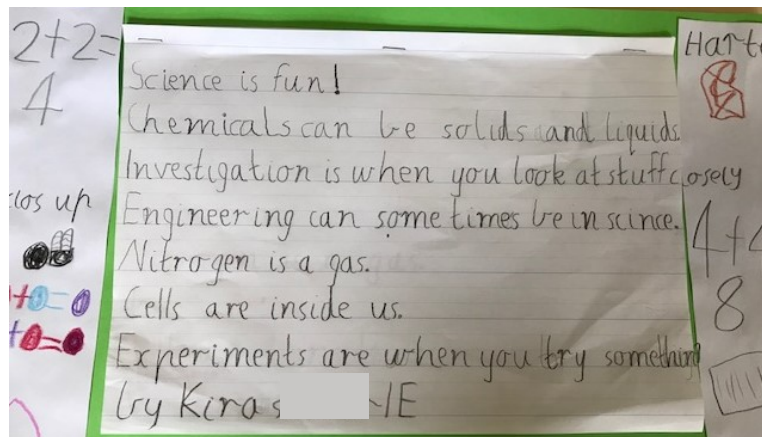 2+2=
4
clos up
Science is fun!
Chemicals can be solids and liquids.
Investigation is when you look at stuff closely
Engineering can sometimes be in scince.
Nitrogen is a gas.
Cells are inside us.
Experiments are when you try something
by Kira s
1E
4+4
8